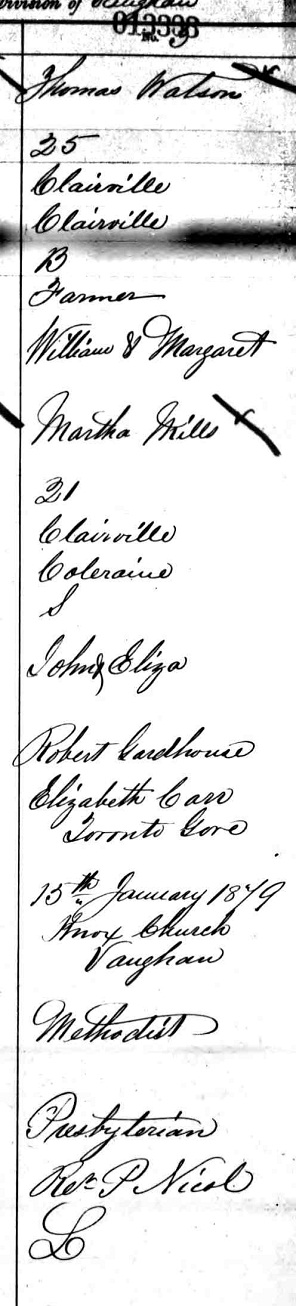 Division of Vaughan
013393
No. 9
Thomas Watson
25
Clairville
Clairville
B
Farmer
William & Margaret
Martha Mills
21
Clairville
Coleraine
S
John & Eliza
Robert Gardhouse
Elizabeth Carr
Toronto Gore
15th January 1879
Knox Church
Vaughan
Methodist
Presbyterian
Revd P. Nicol
L